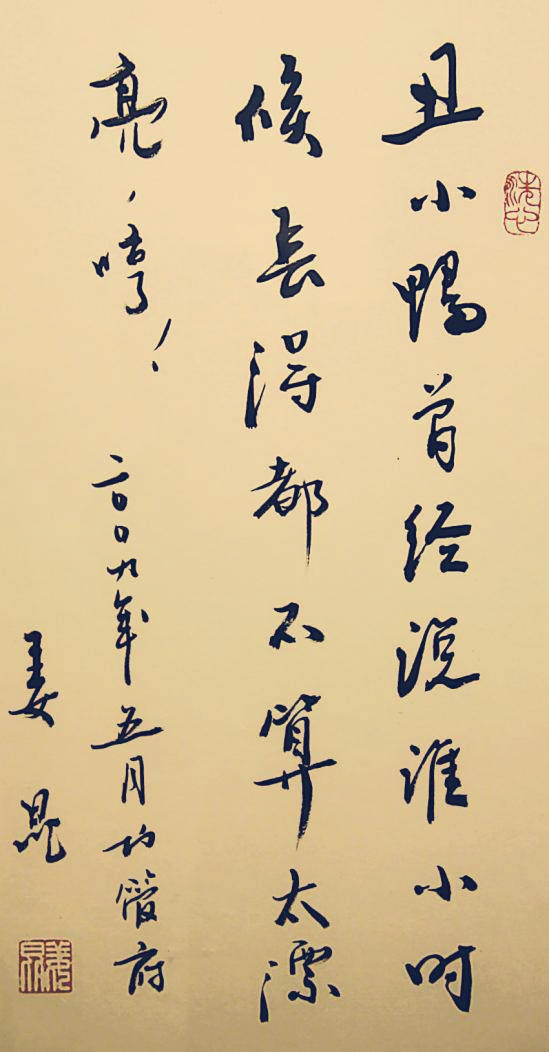 丑小鸭曾经说谁小时
候长得都不算太漂
亮、哼！
二〇〇九年五月
姜昆